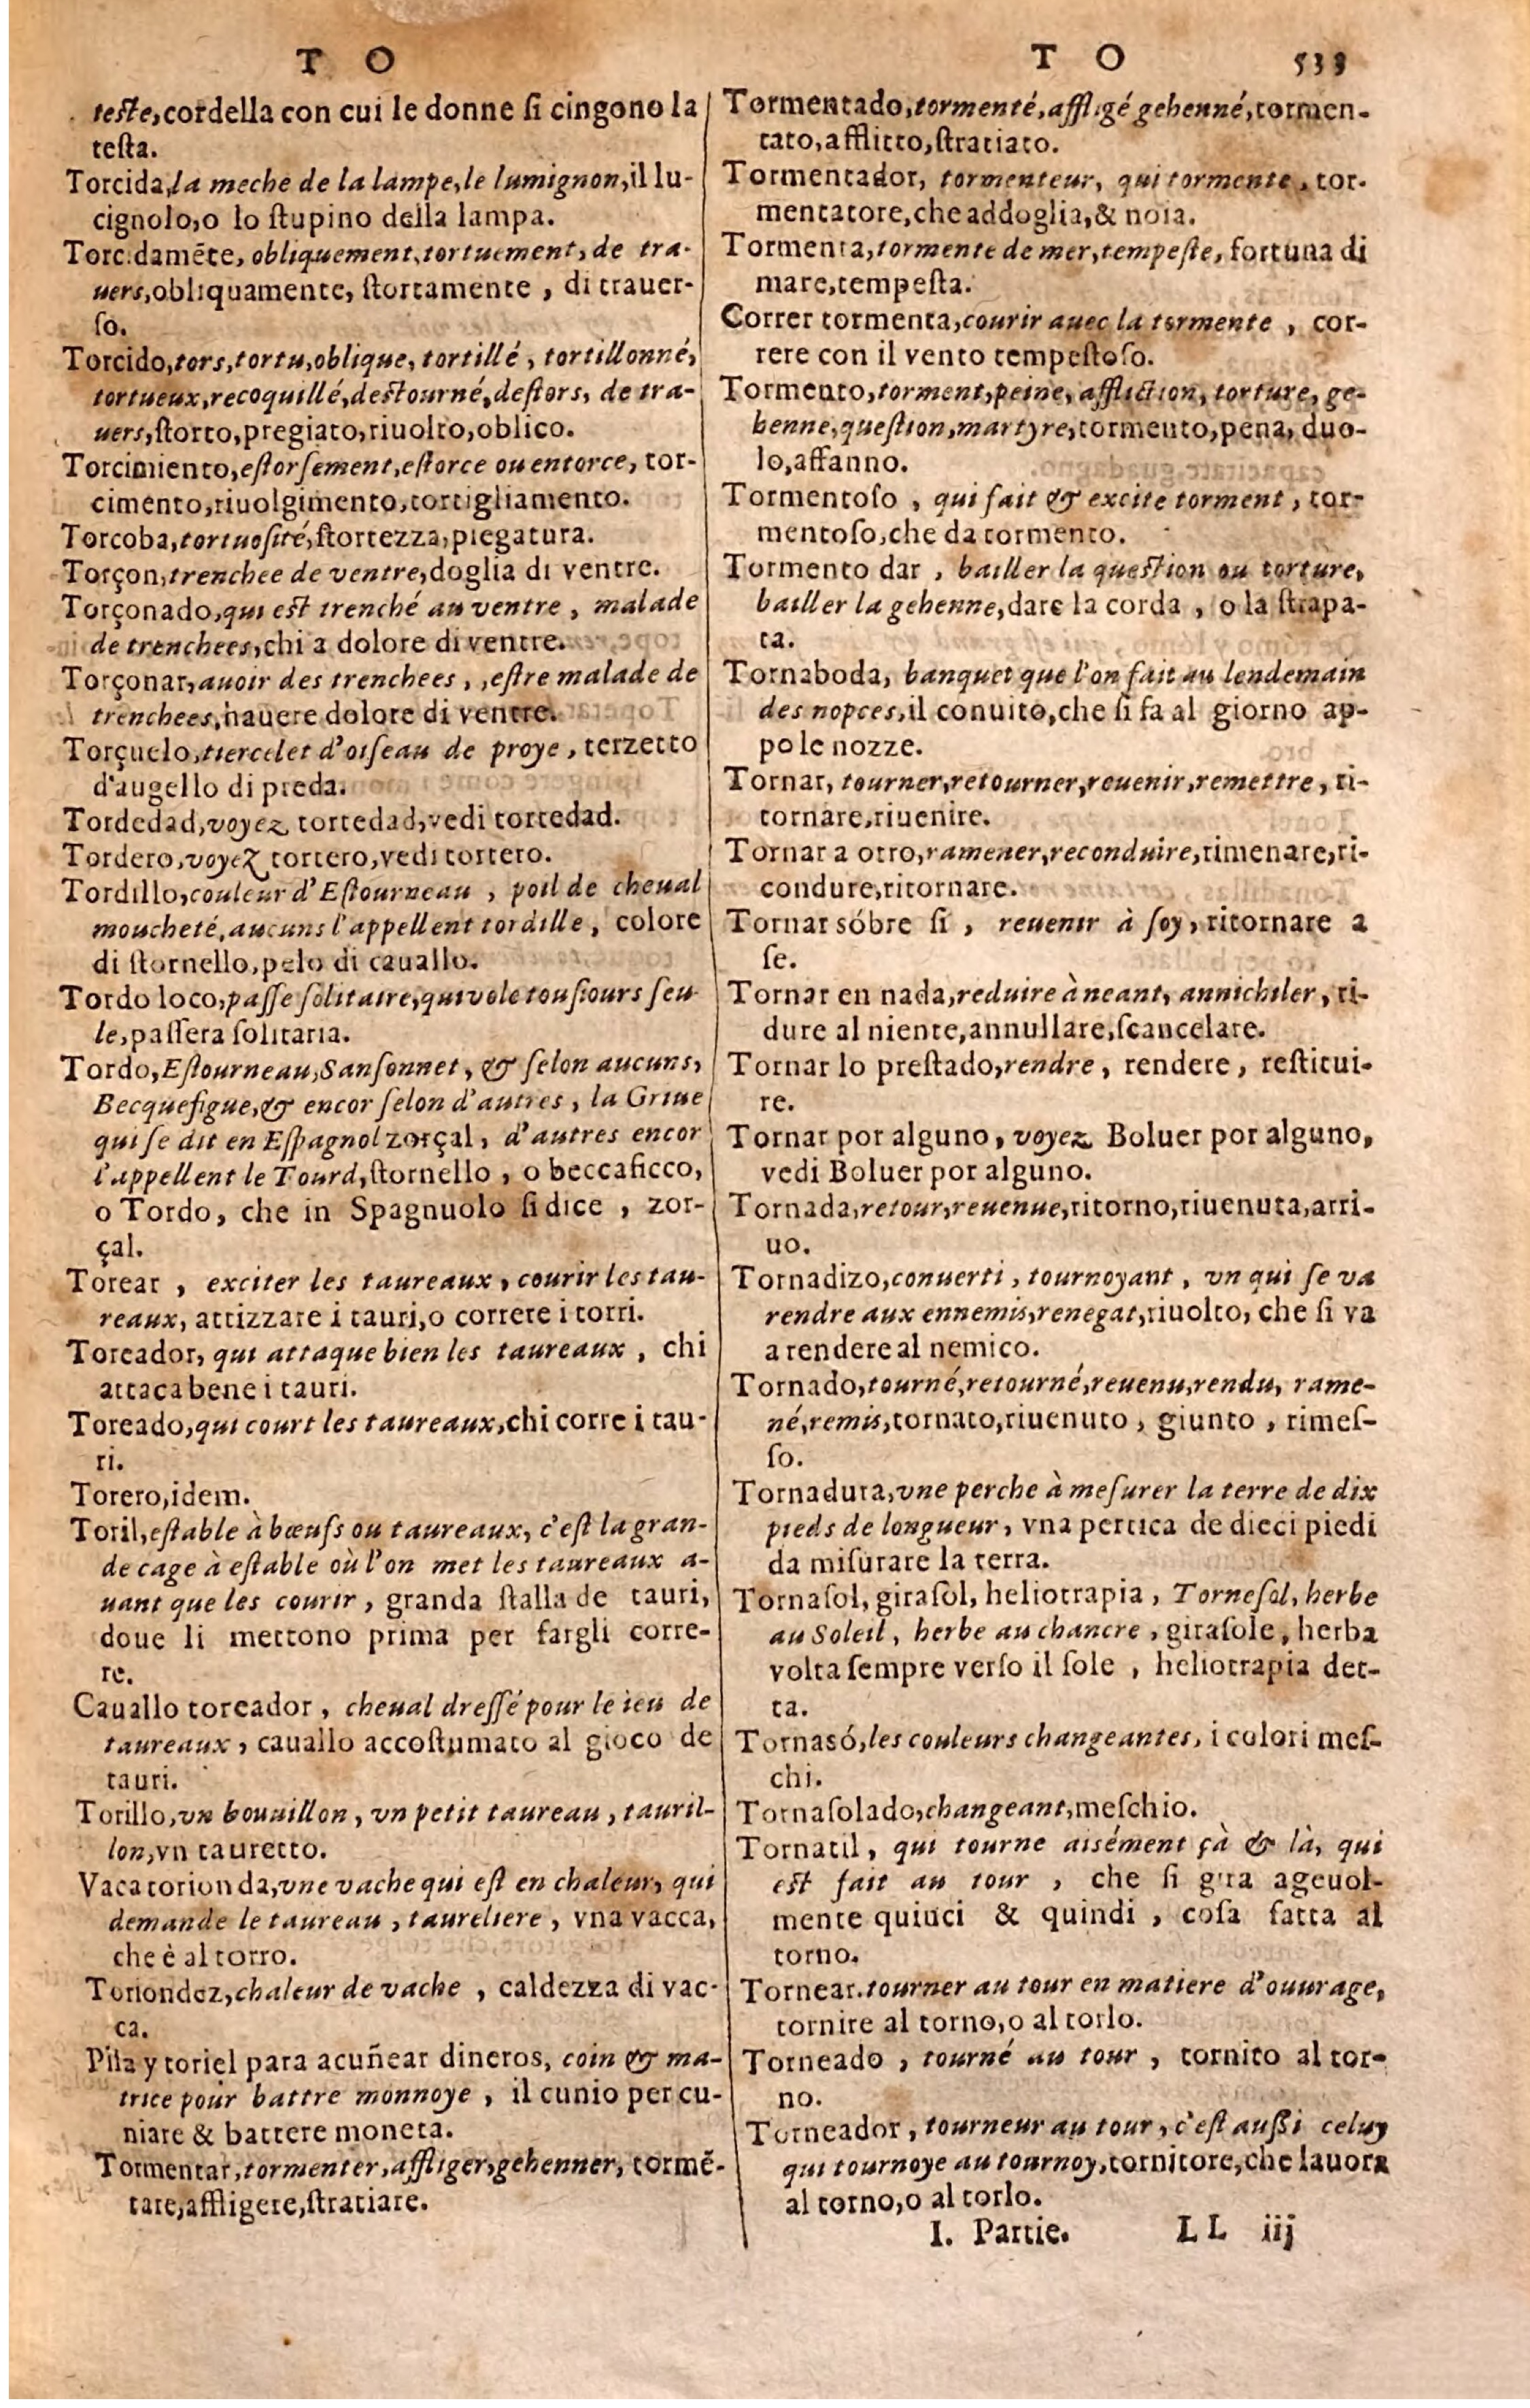 T O
teſte, cordella con cui le donne ſi cingono la
teſta.
Torcida, la meche de la lampe, le lumignon, il lu-
cignolo, o lo ſtupino della lampa.
Torcidamẽte, obliquement, tortuement, de tra-
uers, obliquamente, ſtortamente, di trauer-
ſo.
Torcido, tors, tortu, oblique, tortillé, tortillonné,
tortueux, recoquillé, deſtourné, deſtors, de tra-
uers, ſtorto, pregiato, riuolto, oblico.
Torcimiento, eſtorſement, eſtorce ou entorce, tor-
cimento, riuolgimento, tortigliamento.
Torcoba, tortuoſité, ſtortezza, piegatura.
Torçon, trenchee de ventre, doglia di ventre.
Torçonado, qui eſt trenché au ventre, malade
de trenchees, chi a dolore di ventre.
Torçonar, auoir des trenchees, , eſtre malade de
trenchees, hauere dolore di ventre.
Torçuelo, tiercelet d'oiſeau de proye, terzetto
d'augello di preda.
Tordedad, voyez tortedad, vedi tortedad.
Tordero, voyez tortero, vedi tortero.
Tordillo, couleur d'Eſtourneau, poil de cheual
moucheté, aucuns l'appellent tordille, colore
di ſtornello, pelo di cauallo.
Tordo loco, paſſe ſolitaire, qui vole touſiours ſeu-
le, paſſera ſolitaria.
Tordo, Eſtourneau, Sanſonnet, & ſelon aucuns,
Becquefigue, & encor ſelon d'autres, la Griue
qui ſe dit en Eſpagnol zorçal, d'autres encor
l'appellent le Tourd, ſtornello, o beccaficco,
o Tordo, che in Spagnuolo ſi dice, zor-
çal.
Torear, exciter les taureaux, courir les tau-
reaux, attizzare i tauri, o correre i torri.
Toreador, qui attaque bien les taureaux, chi
attaca bene i tauri.
Toreado, qui court les taureaux, chi corre i tau-
ri.
Torero, idem.
Toril, eſtable à bœufs ou taureaux, c'eſt la gran-
de cage à eſtable où l'on met les taureaux a-
uant que les courir, granda ſtalla de tauri,
doue li mettono prima per fargli corre-
re.
Cauallo toreador, cheual dreſſé pour le ieu de
taureaux, cauallo accoſtumato al gioco de
tauri.
Torillo, vn bouuillon, vn petit taureau, tauril-
lon, vn tauretto.
Vaca torionda, vne vache qui eſt en chaleur, qui
demande le taureau, taureliere, vna vacca,
che è al torro.
Toriondez, chaleur de vache, caldezza di vac-
ca.
Pila y toriel para acuñear dineros, coin & ma-
trice pour battre monnoye, il cunio per cu-
niare & battere moneta.
Tormentar, tormenter, affliger, gehenner, tormẽ-
tare, affligere, ſtratiare.
T O 539
Tormentado, tormenté, affligé gehenné, tormen-
tato, afflitto, ſtratiato.
Tormentador, tormenteur, qui tormente, tor-
mentatore, che addoglia, & noia.
Tormenta, tormente de mer, tempeſte, fortuna di
mare, tempeſta.
Correr tormenta, courir auec la tormente, cor-
rere con il vento tempeſtoſo.
Tormento, torment, peine, affliction, torture, ge-
henne, queſtion, martyre, tormento, pena, duo-
lo, affanno.
Tormentoſo, qui fait & excite torment, tor-
mentoſo, che da tormento.
Tormento dar, bailler la queſtion ou torture,
bailler la gehenne, dare la corda, o la ſtrapa-
ta.
Tornaboda, banquet que l'on fait au lendemain
des nopces, il conuito, che ſi fa al giorno ap-
po le nozze.
Tornar, tourner, retourner, reuenir, remettre, ri-
tornare, riuenire.
Tornar a otro, ramener, reconduire, rimenare, ri-
condure, ritornare.
Tornar sóbre ſi, reuenir à ſoy, ritornare a
ſe.
Tornar en nada, reduire à neant, annichiler, ri-
dure al niente, annullare, ſcancelare.
Tornar lo preſtado, rendre, rendere, reſtitui-
re.
Tornar por alguno, voyez Boluer por alguno,
vedi Boluer por alguno.
Tornada, retour, reuenue, ritorno, riuenuta, arri-
uo.
Tornadizo, conuerti, tournoyant, vn qui ſe va
rendre aux ennemis, renegat, riuolto, che ſi va
a rendere al nemico.
Tornado, tourné, retourné, reuenu, rendu, rame-
né, remis, tornato, riuenuto, giunto, rimeſ-
ſo.
Tornadura, vne perche à meſurer la terre de dix
pieds de longueur, vna pertica de dieci piedi
da miſurare la terra.
Tornaſol, giraſol, heliotrapia, Torneſol, herbe
au Soleil, herbe au chancre, giraſole, herba
volta ſempre verſo il ſole, heliotrapia det-
ta.
Tornasó, les couleurs changeantes, i colori meſ-
chi.
Tornaſolado, changeant, meſchio.
Tornatil, qui tourne aisément çà & là, qui
eſt fait au tour, che ſi gira ageuol-
mente quiuci & quindi, coſa fatta al
torno.
Tornear. tourner au tour en matiere d'ouurage,
tornire al torno, o al torlo.
Torneado, tourné au tour, tornito al tor-
no.
Torneador, tourneur au tour, c'eſt auſſi celuy
qui tournoye au tournoy, tornitore, che lauora
al torno, o al torlo.
I. Partie. LL iij